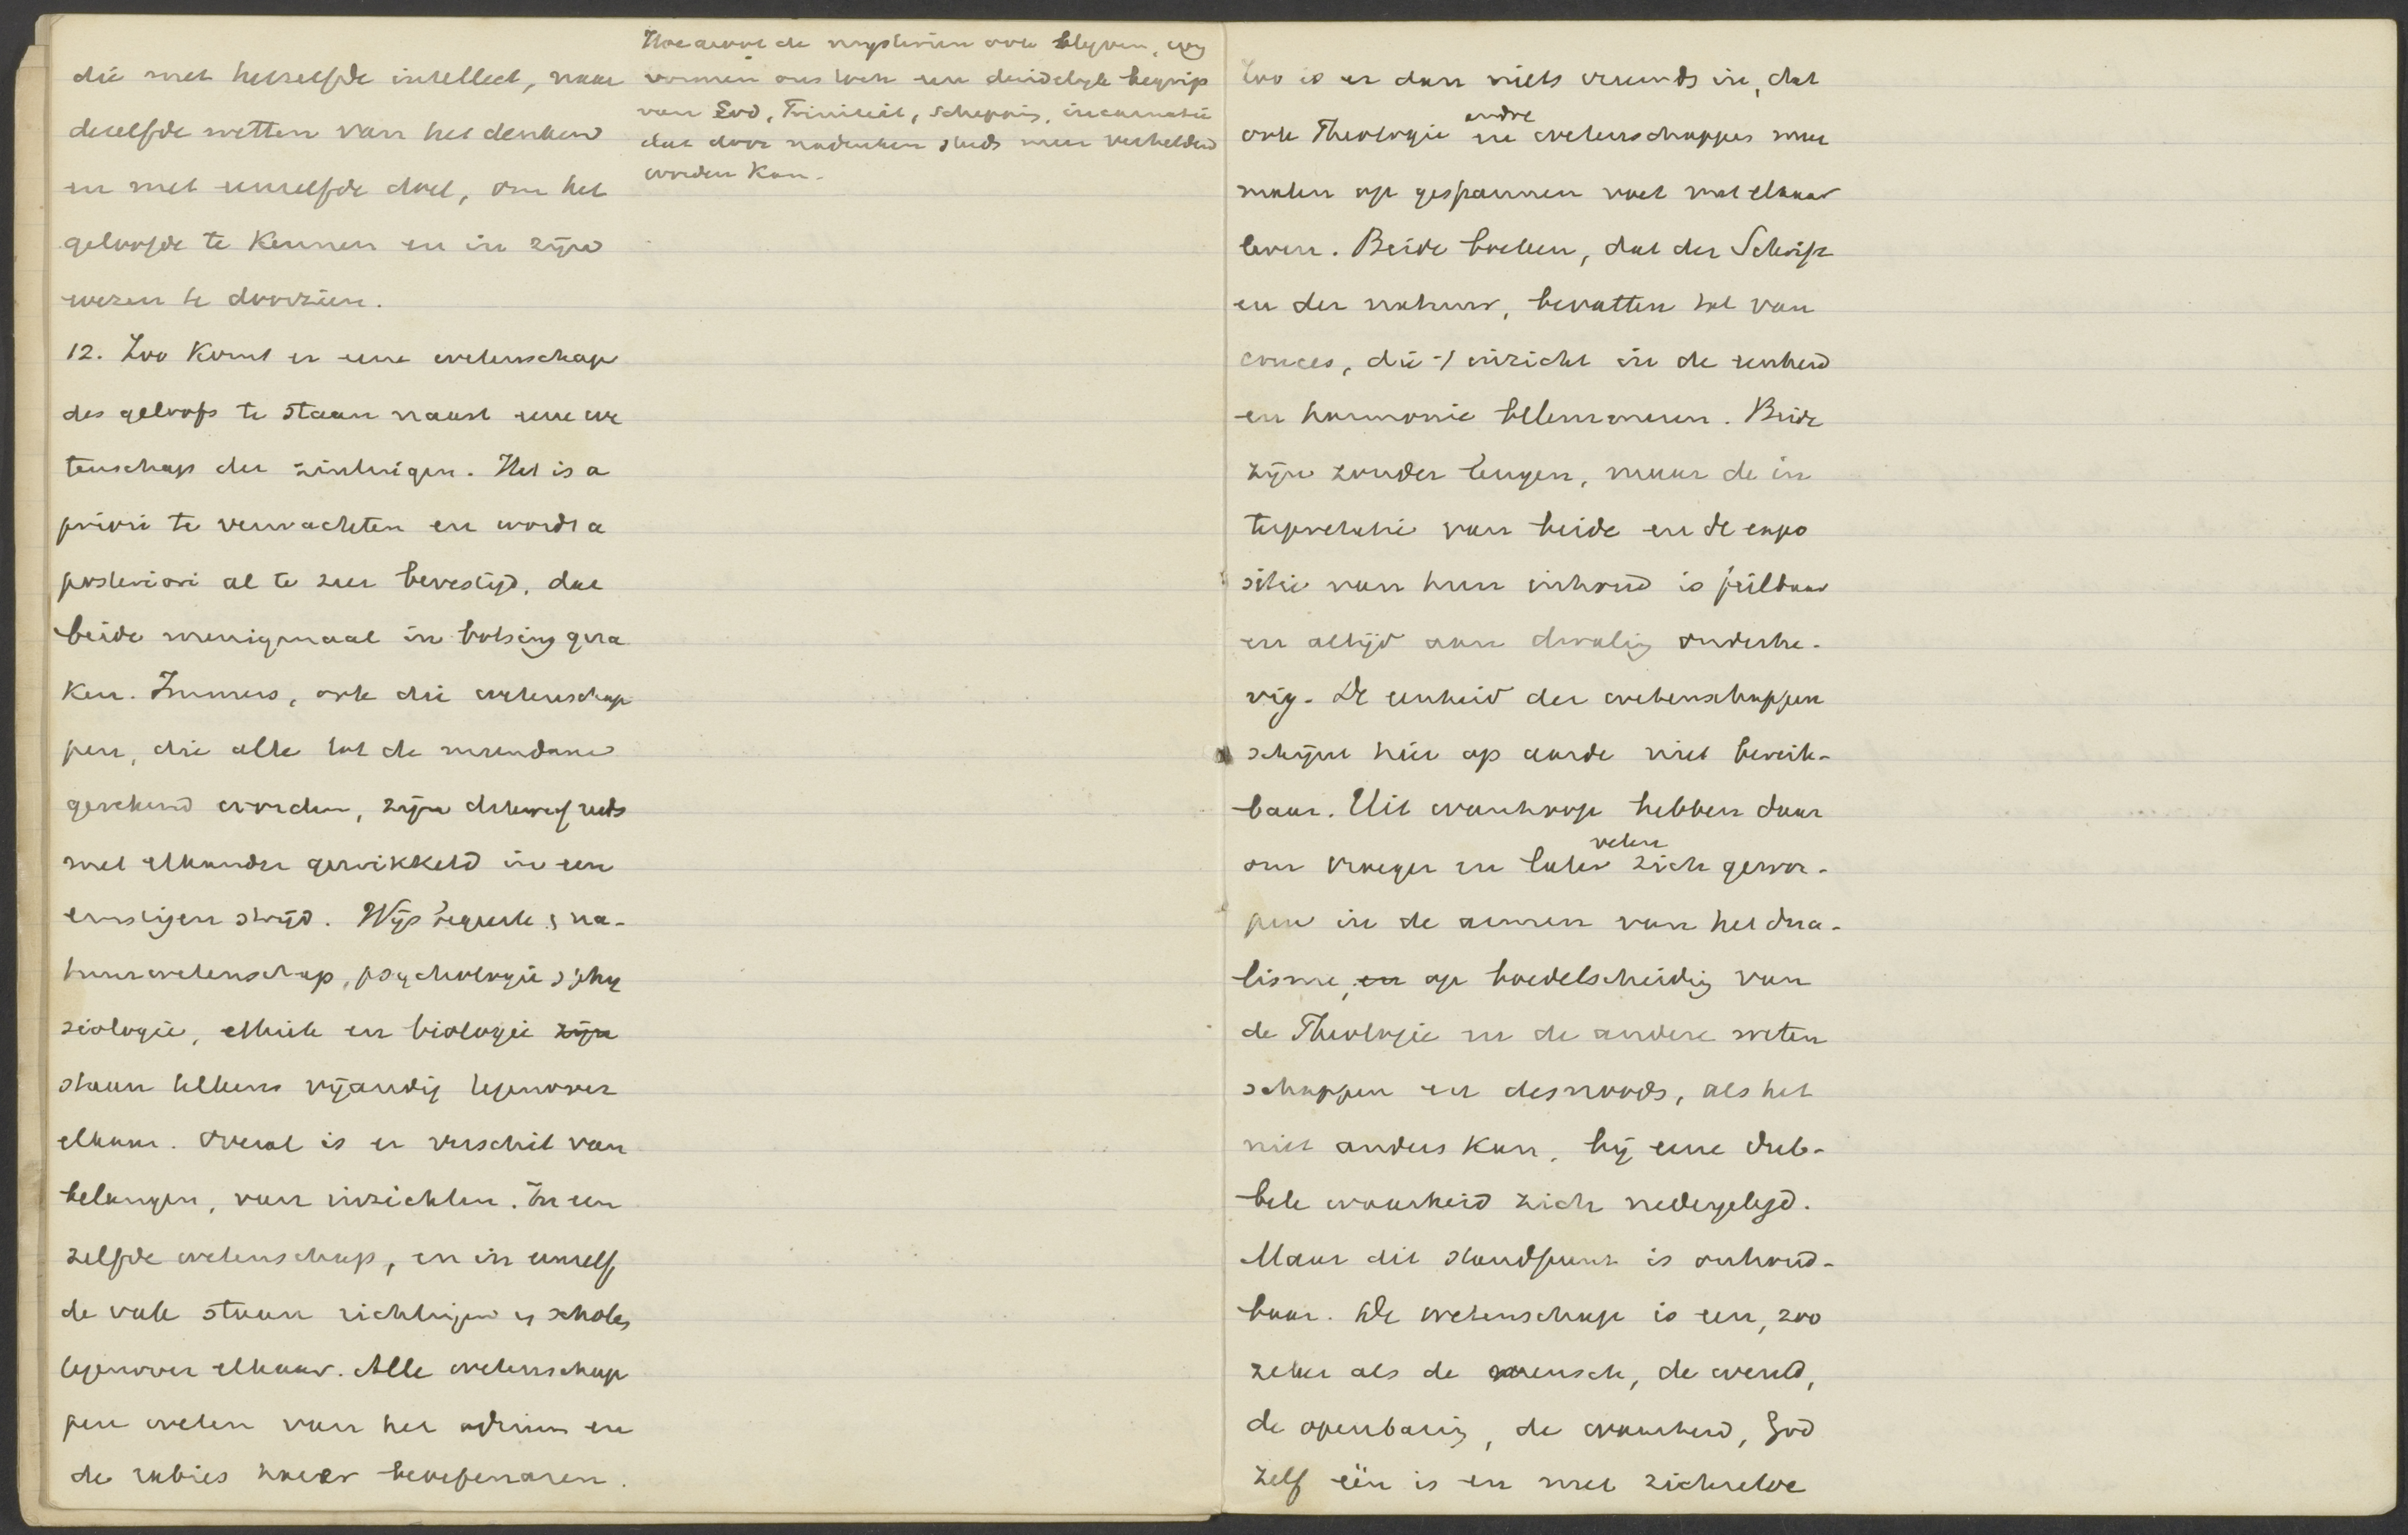 die met hetzelfde intellect, naar
dezelfde wetten van het denken
en met eenzelfde doel, om het
geloofde te kennen en in zijn
wezen te doorzien.
12. Zoo komt er eene wetenschap
des geloofs te staan naast eene we
tenschap der zintuigen. Het is a
priori te verwachten en wordt a
posteriori al te zeer bevestigd, dat
beide menigmaal in botsing gera
ken. Immers, ook die wetenschap
pen, die alle tot de mundane
gerekend worden, zijn dikwerf reeds
met elkander gewikkeld in een
ernstigen strijd. Wijsbegeerte en na-
tuurwetenschap, psychologie en phy
siologie, ethiek en biologie zijn
staan telkens vijandig tegenover
elkaar. Overal is er verschil van
belangen, van inzichten. In een
zelfde wetenschap, en in eenzelf
de vak staan richtingen en scholen
tegenover elkaar. Alle wetenschap
pen weten van het odium en
de rabies harer beoefenaren.
Hoezeer de mysteriën ook blijven, wij
vormen ons toch een duidelijk begrip
van God, Triniteit, schepping, incarnatie
dat door nadenken steeds meer verhelderd
worden kan.
Zoo is er dan niets vreemds in, dat
andre
ook Theologie en wetenschappen meer
malen op gespannen voet met elkaar
leven. Beide boeken, dat der Schrift
en der natuur, bevatten tal van
cruces, die 't inzicht in de eenheid
en harmonie belemmeren. Beide
zijn zonder leugen, maar de in
terpretatie van beide en de expo
sitie van hun inhoud is feilbaar
en altijd aan dwaling onderhe-
vig. De eenheid der wetenschappen
schijnt hier op aarde niet bereik-
baar. Uit wanhoop hebben daar
velen
om vroeger en later zich gewor-
pen in de armen van het dua-
lisme, en op boedelscheiding van
de Theologie en de andere weten
schappen en desnoods, als het
niet anders kan, bij eene dub-
bele waarheid zich nedergelegd.
Maar dit standpunt is onhoud-
baar. De wetenschap is een, zoo
zeker als de mensch, de wereld,
de openbaring, de waarheid, God
zelf één is en met zichzelve